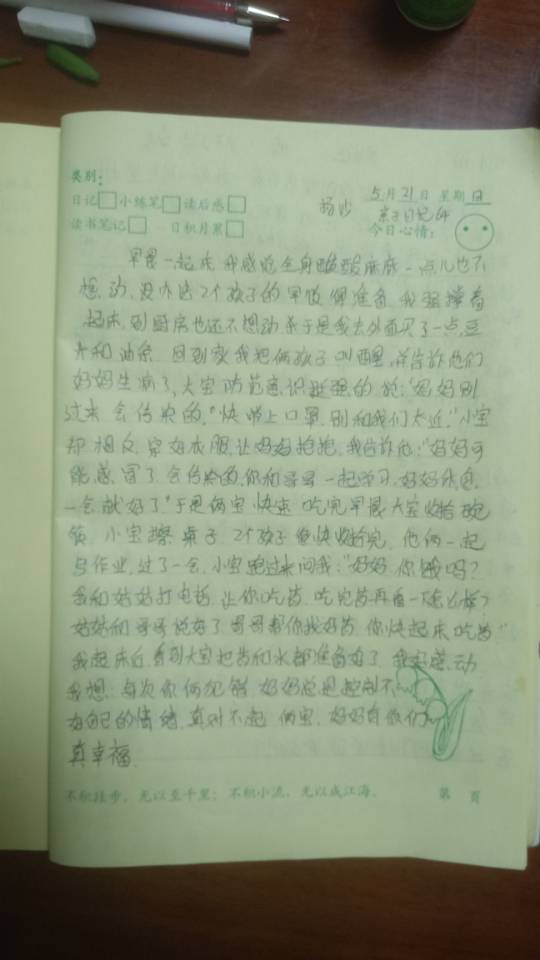 类别：
日记 小练笔 读后感 5月21日 星期日
读书笔记 日积月累 今日心情：
亲子日记
早晨一起床，我感觉全身酸酸疼疼一点儿也不
想动，没办法2个孩子的早饭得准备，我强撑着
起床，到厨房也还不想动，于是我去外面买了一点豆
浆和油条，回到家我把俩孩子叫醒，并告诉他们
妈妈生病了，大宝防范意识挺强的说："妈妈别
过来会传染的，"快带上口罩，别和我们太近，"小宝
却相反，穿好衣服，让妈妈抱抱，我告诉他："妈妈可
能感冒了，会传染的，你和哥哥一起学习，妈妈休息
一会就好了"于是俩宝快速吃完早晨大宝收拾碗
筷，小宝擦桌子，2个孩子很快收拾完，他俩一起
写作业，过了一会，小宝跑过来问我："妈妈你饿吗？
我和姑姑打电话，让你吃药，吃完药再看一下怎么样？
姑姑和哥哥说好了，哥哥帮你找好药，你快起床吃药"
我起床后，看到大宝把药和水都准备好了，我实感动
我想：每次你俩犯错，妈妈总是控制不
好自己的情绪，真对不起俩宝，妈妈有你们
真幸福。
不积跬步，无以至千里；不积小流，无以成江海。 第 页